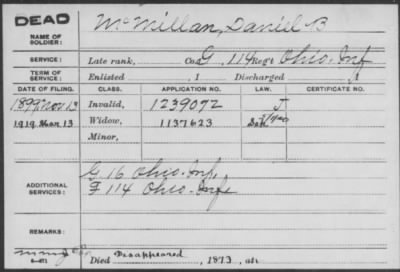 DEAD
NAME OF SOLDIER: McMillan, Daniel B
SERVICE: Late rank, Co. G, 114 Reg't Ohio Inf
TERM OF SERVICE: Enlisted , 1 Discharged , 1
DATE OF FILING. CLASS. APPLICATION NO. LAW. CERTIFICATE NO.
1899 Nov 13 Invalid, 1239072 J
1919 Mar 13 Widow, 1137623
Minor,
ADDITIONAL SERVICES: G 16 Ohio Inf,
F 114 Ohio Inf
REMARKS:
Died Disappeared, 1873, at